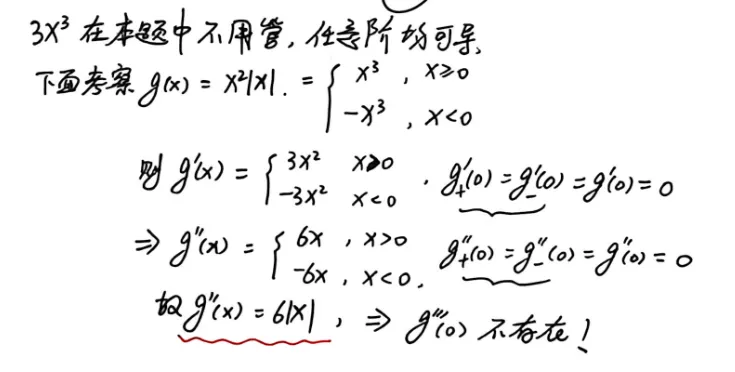 3x³ 在本题中不用管, 任意阶均可导,
下面考察 g(x) = x²|x|. = { x³ , x≥0
-x³ , x<0
则 g'(x) = { 3x² x>0 . g'₊(0) = g'₋(0) = g'(0) = 0
-3x² x<0
⇒ g''(x) = { 6x , x>0 g''₊(0) = g''₋(0) = g''(0) = 0
-6x , x<0.
故 g''(x) = 6|x| , ⇒ g'''(0) 不存在!